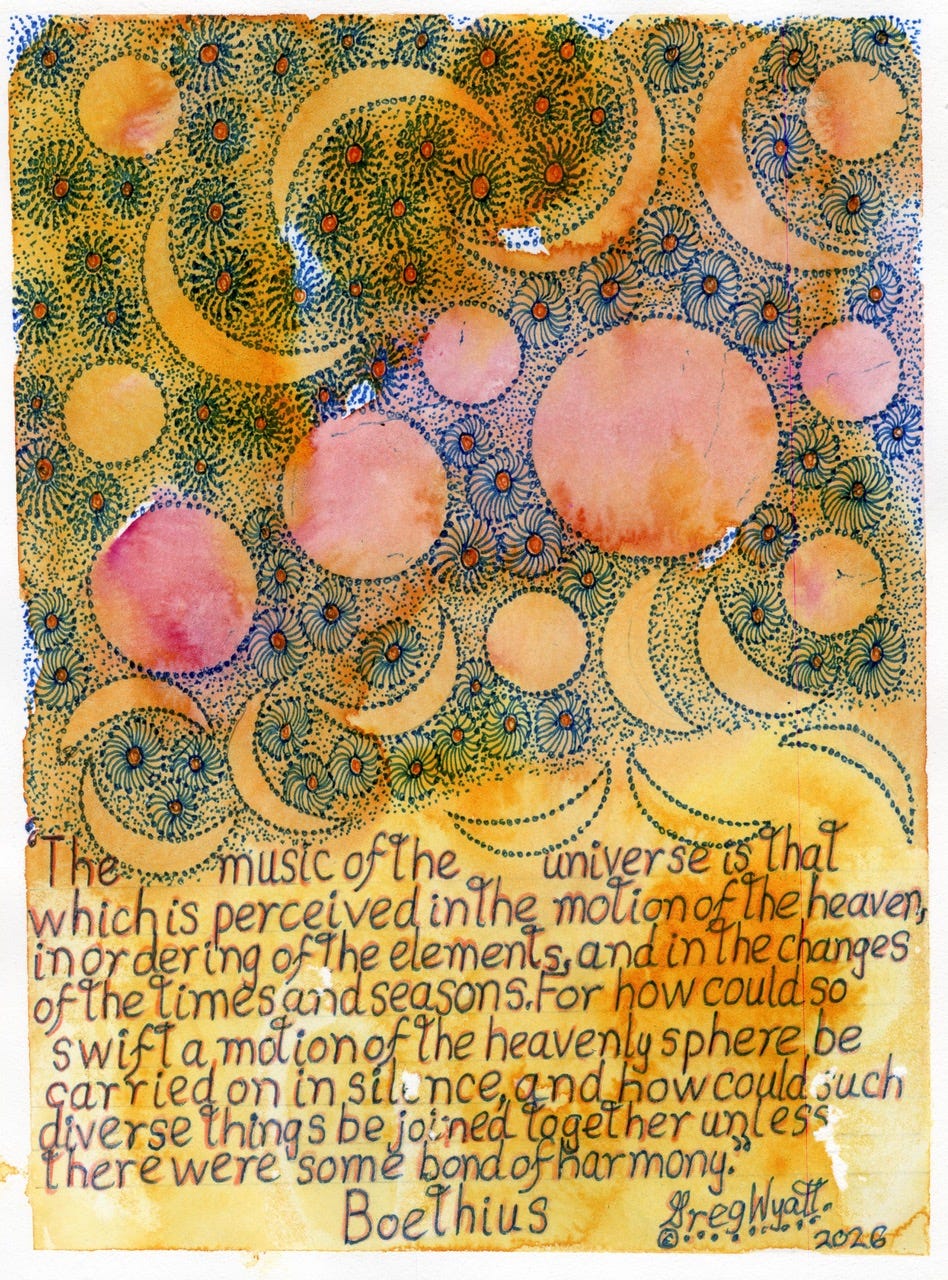 "The music of the universe is that
which is perceived in the motion of the heaven,
in ordering of the elements, and in the changes
of the times and seasons. For how could so
swift a motion of the heavenly sphere be
carried on in silence, and how could such
diverse things be joined together unless
there were some bond of harmony."
Boethius
Greg Wyatt.
© 2026